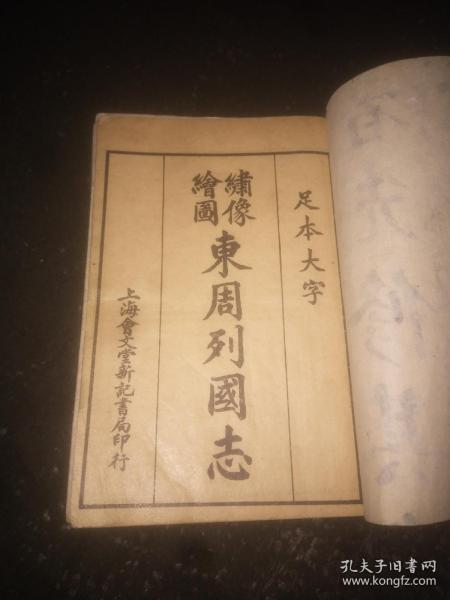 足本大字
繡像
繪圖
東周列國志
上海會文堂新記書局印行
孔夫子旧书网
www.kongfz.com